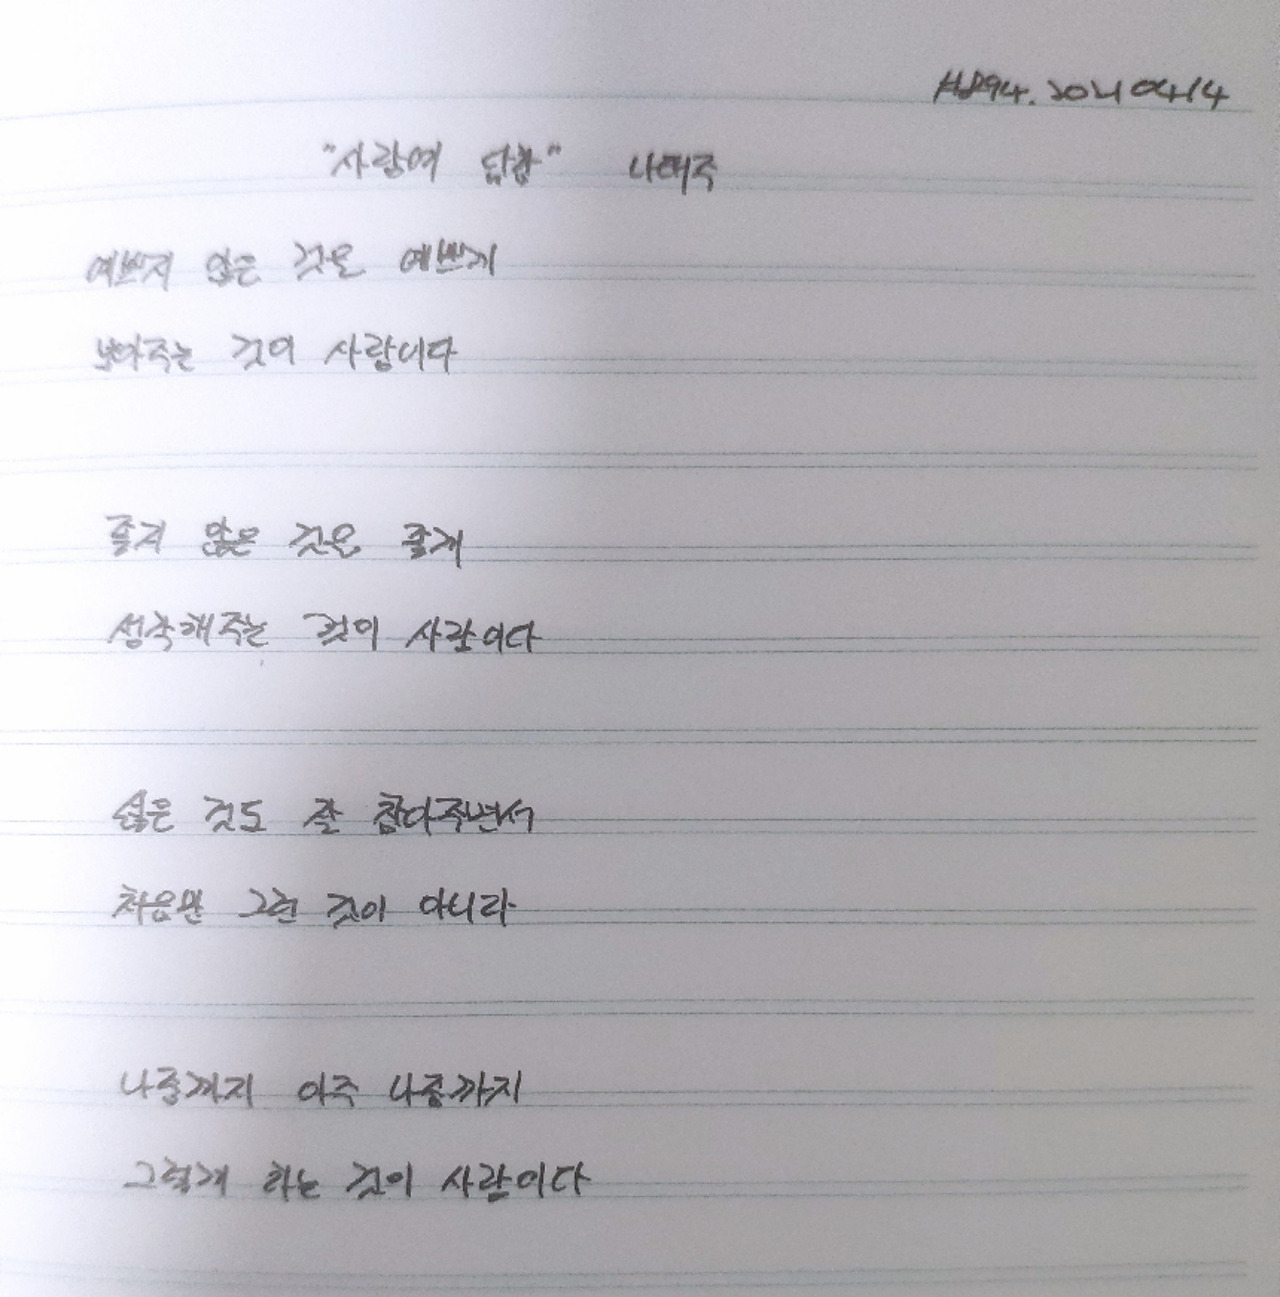 HB94. 20210414
"사랑에 답함" 나태주
예쁘지 않은 것을 예쁘게
보아주는 것이 사랑이다
좋지 않은 것을 좋게
생각해주는 것이 사랑이다
싫은 것도 잘 참아주면서
처음만 그런 것이 아니라
나중까지 아주 나중까지
그렇게 하는 것이 사랑이다